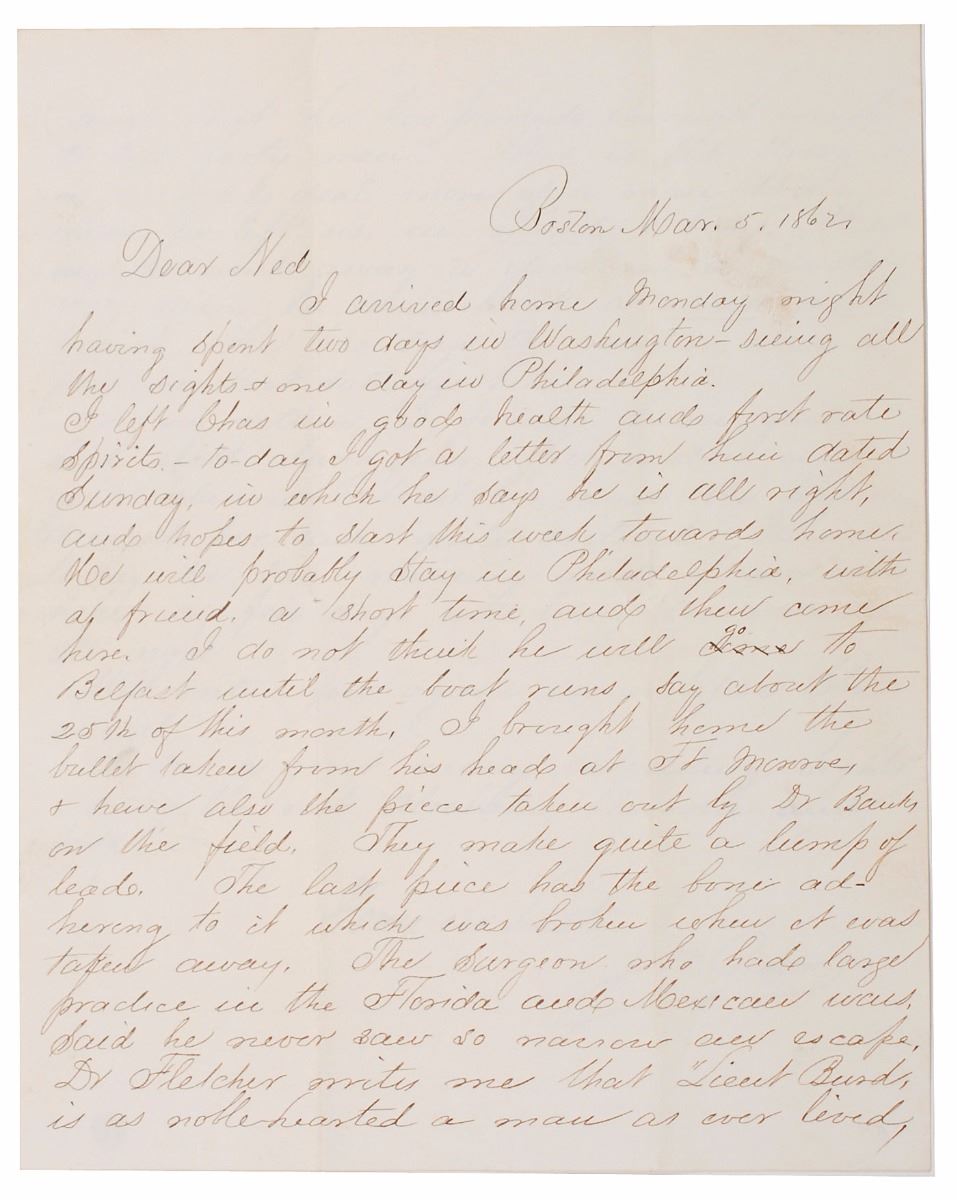 Boston Mar. 5. 1862,
Dear Ned
I arrived home Monday night
having spent two days in Washington – seeing all
the sights & one day in Philadelphia.
I left Chas in good health and first rate
spirits. – to-day I got a letter from him dated
Sunday, in which he says he is all right,
and hopes to start this week towards home.
He will probably stay in Philadelphia, with
a friend, a short time, and then come
here. I do not think he will go to
Belfast until the boat runs say about the
25th of this month. I brought home the
bullet taken from his head at Ft Monroe,
& have also the piece taken out by Dr Banks
on the field. They make quite a lump of
lead. The last piece has the bone ad-
hering to it which was broken when it was
taken away. The Surgeon who had large
practice in the Florida and Mexican wars,
said he never saw so narrow an escape.
Dr Fletcher writes me that "Lieut Burd,
is as noble-hearted a man as ever lived,